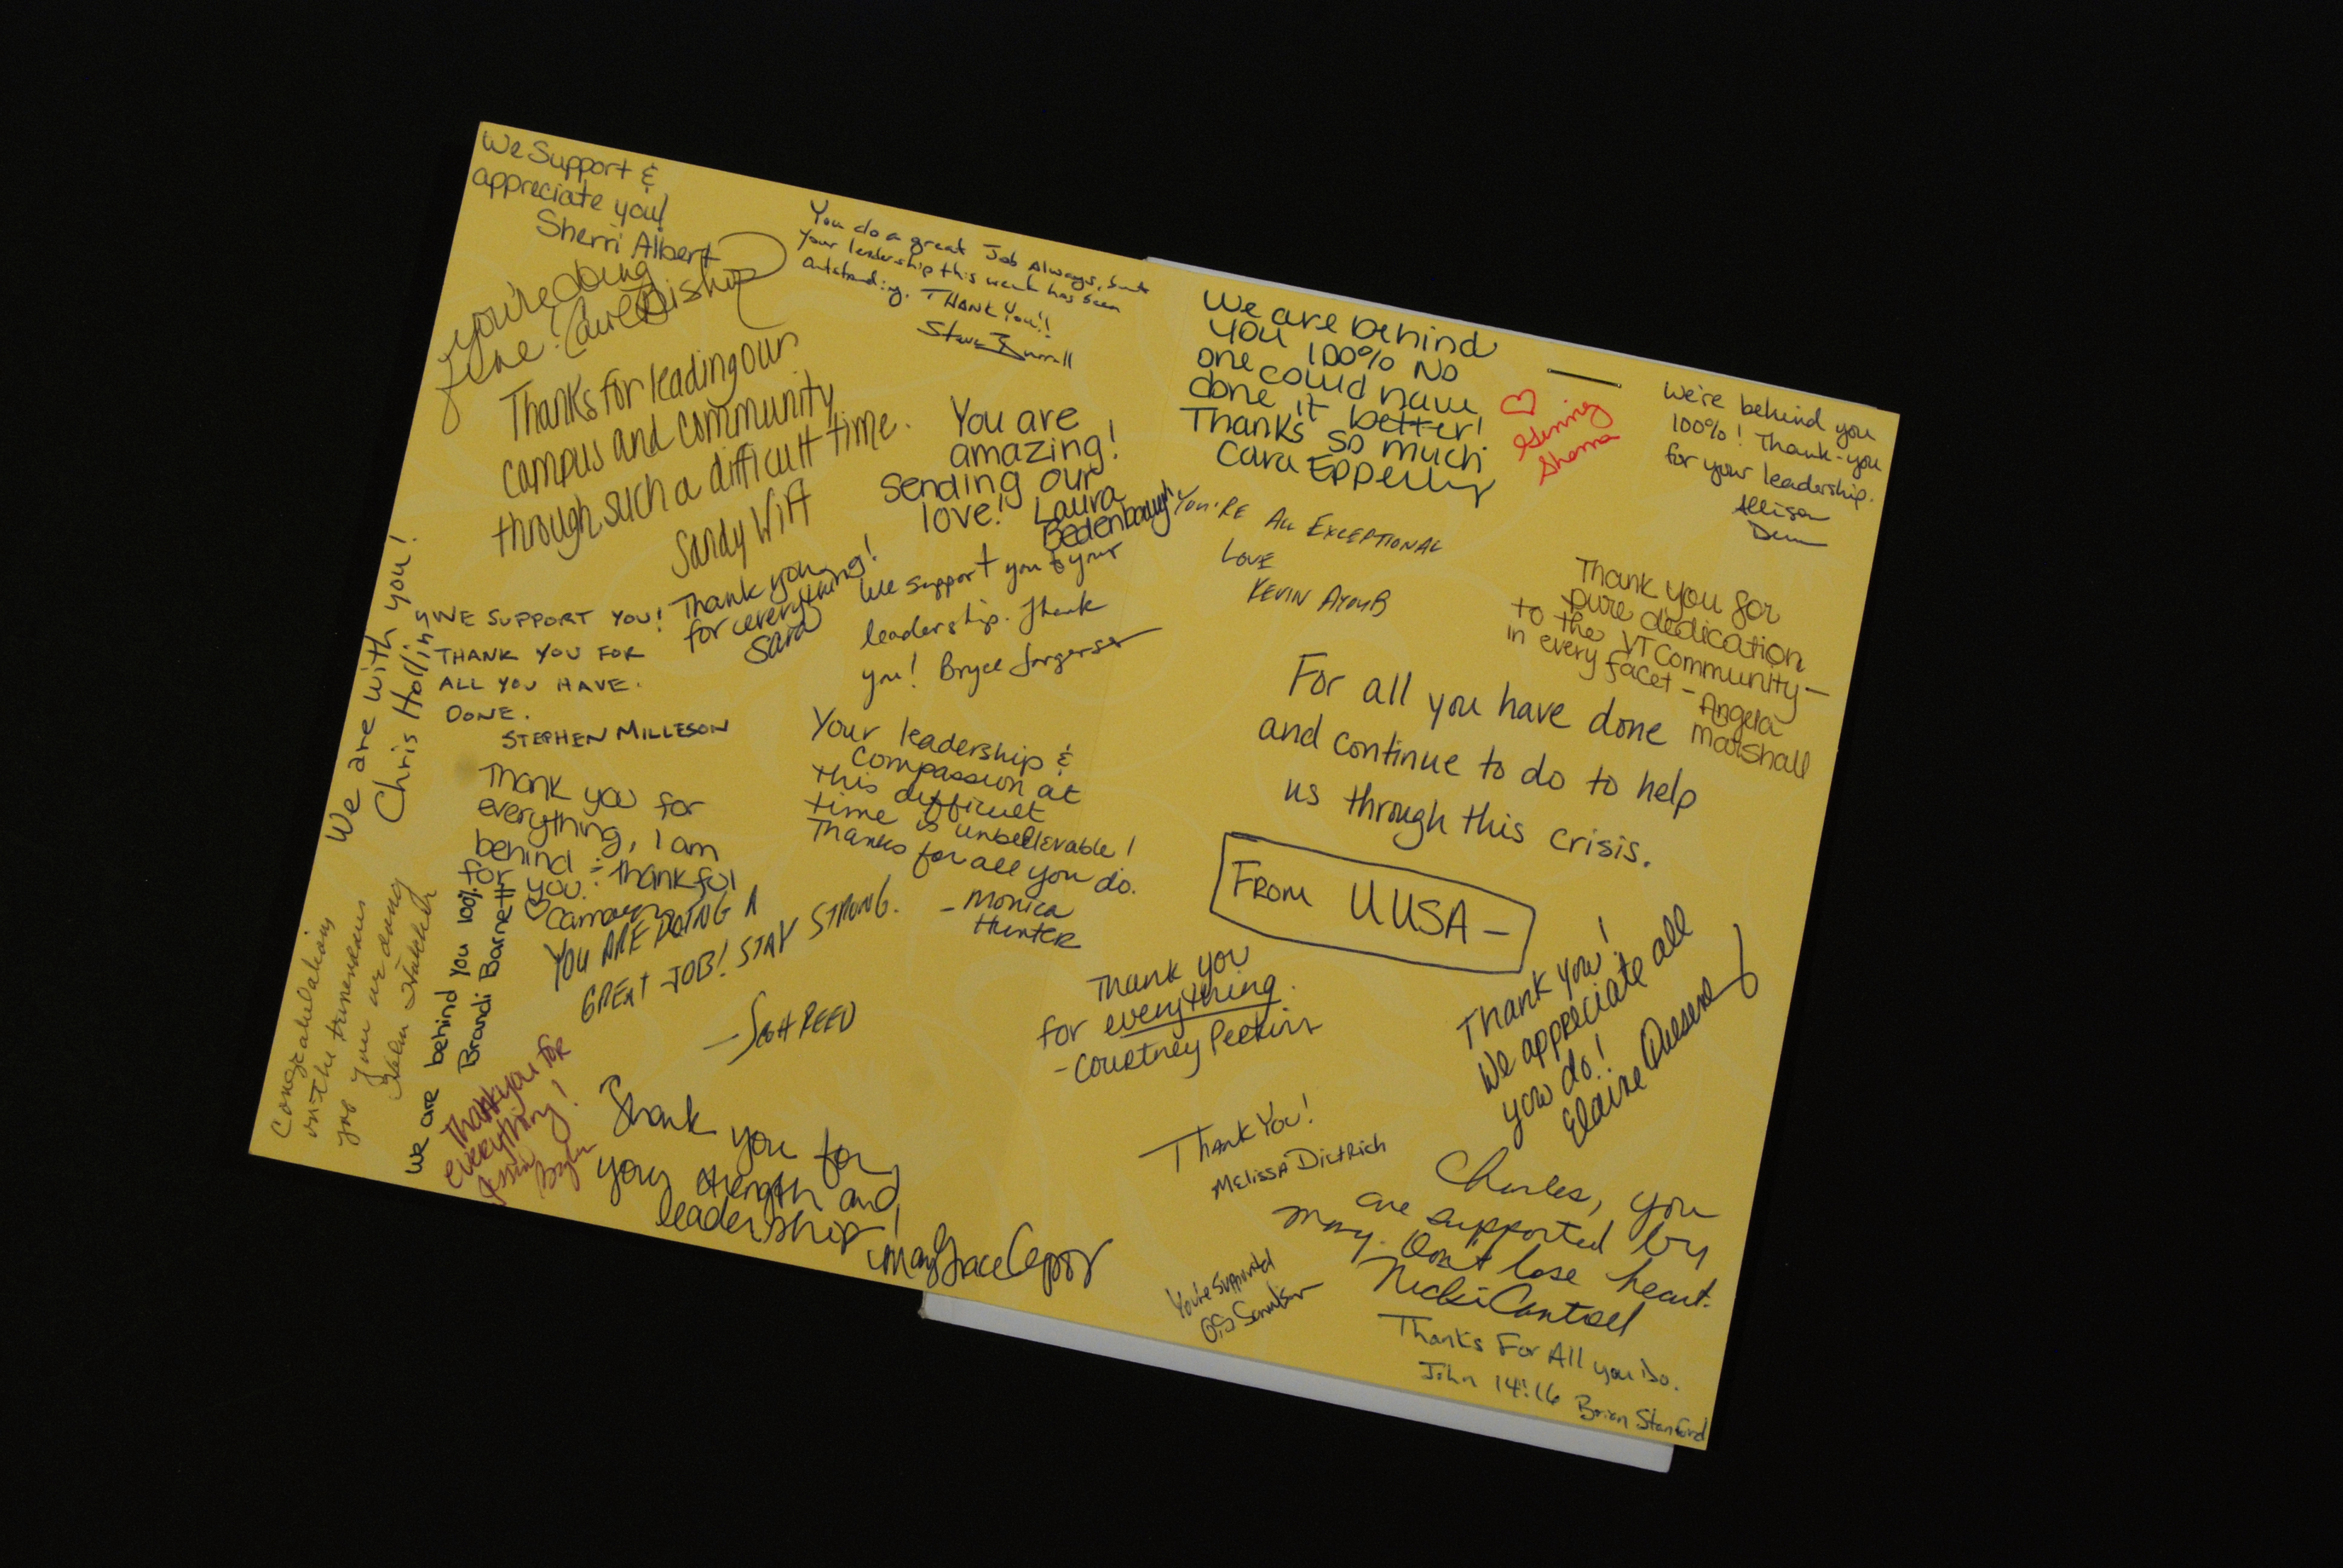 We Support &
appreciate you!
Sherri Albert
you're doing
fine!
You do a great Job Always, but
your leadership this week has been
outstanding. THANK YOU!!
Steve
Thanks for leading our
campus and community
through such a difficult time.
Sandy Wirt
You are
amazing!
Sending our
love! Laura
Bedenbaugh
We are with you!
Chris Hollins
WE SUPPORT YOU!
THANK YOU FOR
ALL YOU HAVE.
DONE.
STEPHEN MILLESON
Thank you
for everything!
Sara
We support you & your
leadership. Thank
you! Bryce Jorgensen
Thank you for
everything, I am
behind
for you. Thankful
Cameron
Your leadership &
compassion at
this difficult
time is unbelievable!
Thanks for all you do.
- Monica
Hunter
Congratulations
on the tremendous
job you are doing
We are behind you 100%
Brandi Barnett
YOU ARE DOING A
GREAT JOB! STAY STRONG.
- Scott REED
Thank you for
everything!
Thank you for
your strength and
leadership!
Mary Grace
We are behind
you 100% No
one could have
done it better!
Thanks so much
Cara Epperly
♡
Ginny
We're behind you
100%! Thank-you
for your leadership.
Allison
You're An Exceptional
Love
Kevin Ayoub
Thank you for
pure dedication
to the VT Community -
in every facet - Angela
Marshall
For all you have done
and continue to do to help
us through this crisis.
From UUSA -
Thank you
for everything.
- Courtney Perkins
Thank you!
We appreciate all
you do!
Elaine
Thank You!
Melissa Dietrich
Charles, you
are supported by
many. Don't lose heart.
Nicki Cantrell
You're supported
Thanks For All you Do.
John 14:16 Brian Stanford